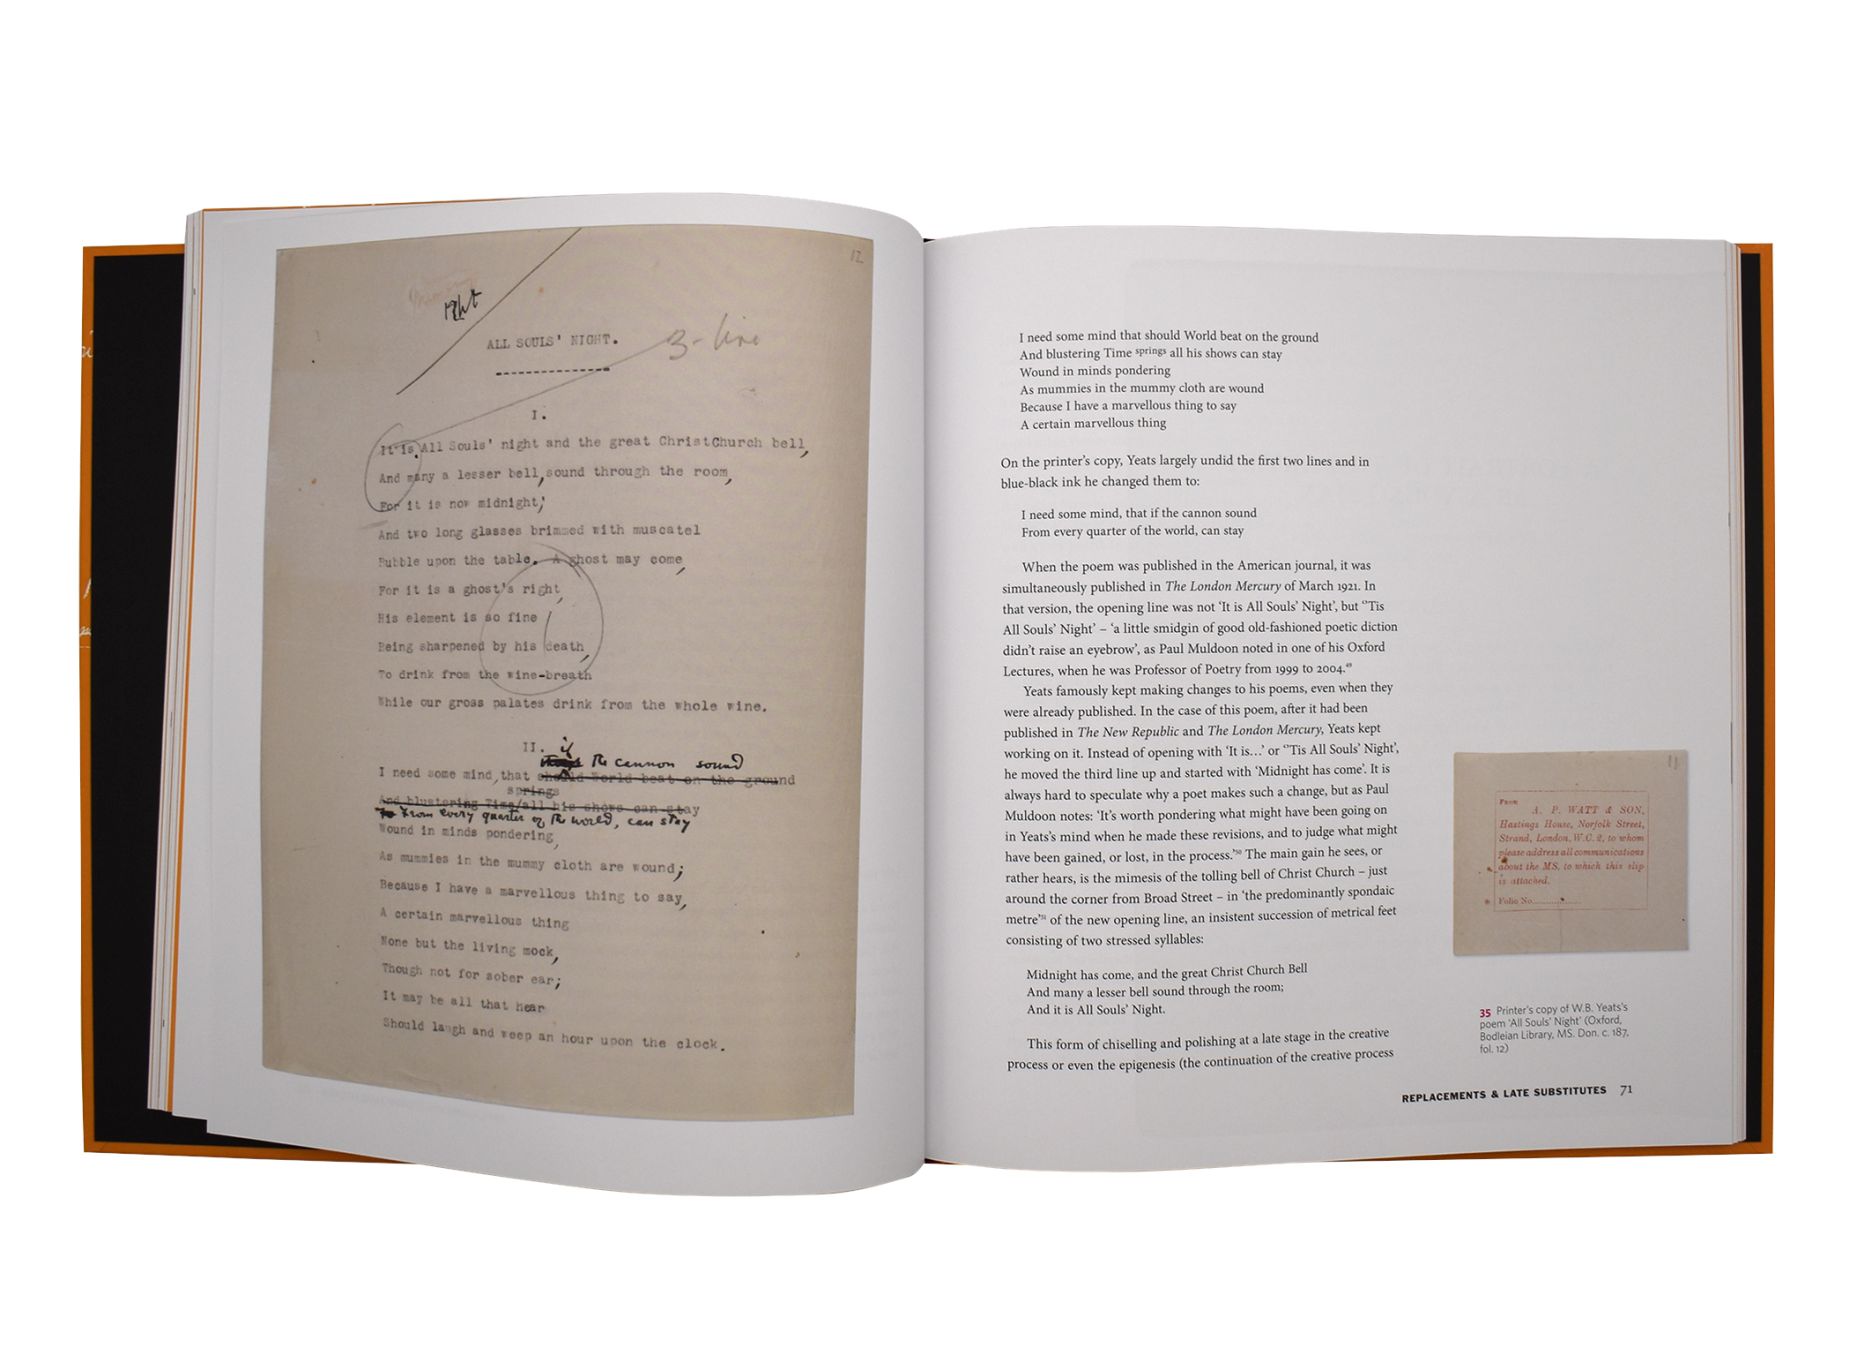 12
ALL SOULS' NIGHT.
3-line
I.
It is All Souls' night and the great ChristChurch bell,
And many a lesser bell, sound through the room,
For it is now midnight;
And two long glasses brimmed with muscatel
Bubble upon the table. A ghost may come,
For it is a ghost's right,
His element is so fine
Being sharpened by his death,
To drink from the wine-breath
While our gross palates drink from the whole wine.
II.
if the cannon sound
I need some mind, that should World beat on the ground
springs
And blustering Time/all his shows can stay
From every quarter of the world, can stay
Wound in minds pondering,
As mummies in the mummy cloth are wound;
Because I have a marvellous thing to say,
A certain marvellous thing
None but the living mock,
Though not for sober ear;
It may be all that hear
Should laugh and weep an hour upon the clock.
I need some mind that should World beat on the ground
And blustering Time springs all his shows can stay
Wound in minds pondering
As mummies in the mummy cloth are wound
Because I have a marvellous thing to say
A certain marvellous thing
On the printer's copy, Yeats largely undid the first two lines and in
blue-black ink he changed them to:
I need some mind, that if the cannon sound
From every quarter of the world, can stay
When the poem was published in the American journal, it was
simultaneously published in The London Mercury of March 1921. In
that version, the opening line was not ‘It is All Souls’ Night’, but ‘’Tis
All Souls’ Night’ – ‘a little smidgin of good old-fashioned poetic diction
didn’t raise an eyebrow’, as Paul Muldoon noted in one of his Oxford
Lectures, when he was Professor of Poetry from 1999 to 2004.⁴⁹
Yeats famously kept making changes to his poems, even when they
were already published. In the case of this poem, after it had been
published in The New Republic and The London Mercury, Yeats kept
working on it. Instead of opening with ‘It is…’ or ‘’Tis All Souls’ Night’,
he moved the third line up and started with ‘Midnight has come’. It is
always hard to speculate why a poet makes such a change, but as Paul
Muldoon notes: ‘It’s worth pondering what might have been going on
in Yeats’s mind when he made these revisions, and to judge what might
have been gained, or lost, in the process.’⁵⁰ The main gain he sees, or
rather hears, is the mimesis of the tolling bell of Christ Church – just
around the corner from Broad Street – in ‘the predominantly spondaic
metre’⁵¹ of the new opening line, an insistent succession of metrical feet
consisting of two stressed syllables:
Midnight has come, and the great Christ Church Bell
And many a lesser bell sound through the room;
And it is All Souls’ Night.
This form of chiselling and polishing at a late stage in the creative
process or even the epigenesis (the continuation of the creative process
11
FROM
A. P. WATT & SON,
Hastings House, Norfolk Street,
Strand, London, W.C. 2, to whom
please address all communications
about the MS. to which this slip
is attached.
* Folio No.............
35 Printer’s copy of W.B. Yeats’s
poem ‘All Souls’ Night’ (Oxford,
Bodleian Library, MS. Don. c. 187,
fol. 12)
REPLACEMENTS & LATE SUBSTITUTES 71